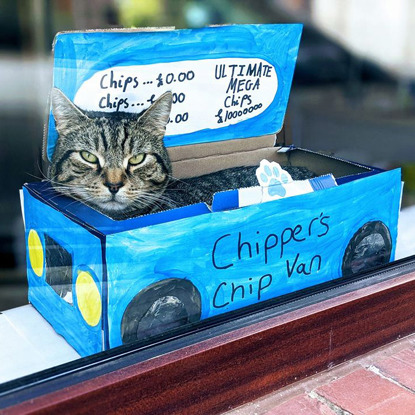 Chips... £0.00
Chips...
.00
.00
ULTIMATE
MEGA
Chips
£10000000
Chipper's
Chip Van